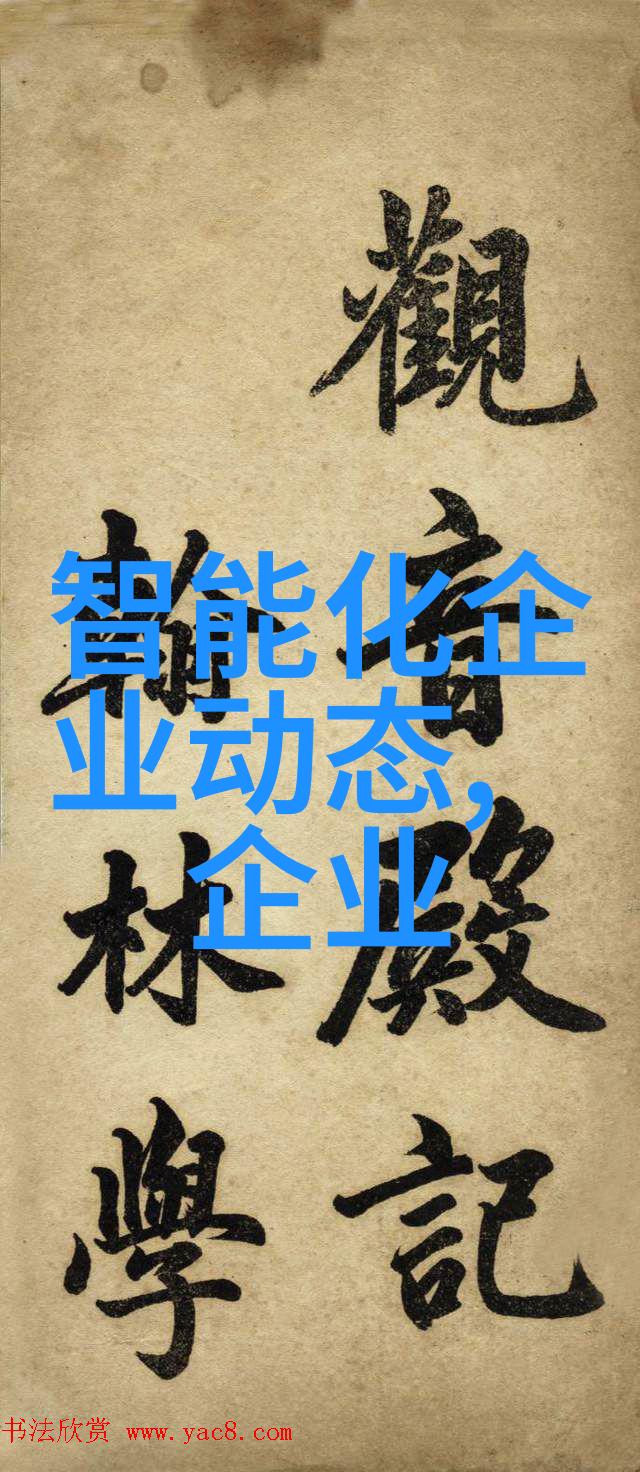 觀音殿記
翰林學
智能化企
业动态,
企业
书法欣赏 www.yac8.com